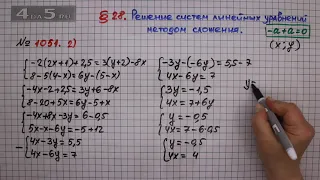 4 на 5.ru
§ 28. Решение систем линейных уравнений
методом сложения.
-a+a=0
(x; y)
№ 1051. 2)
{-2(2x+1)+2,5=3(y+2)-8x
8-5(4-x)=6y-(5-x)
{-4x-2+2,5=3y+6-8x
8-20+5x=6y-5+x
{-4x+8x-3y=6-0,5
5x-x-6y=-5+12
-{4x-3y=5,5
4x-6y=7
{-3y-(-6y)=5,5-7
4x-6y=7
{3y=-1,5
4x=7+6y
{y=-0,5
4x=7-6·0,5
{y=-0,5
4x=4
y=